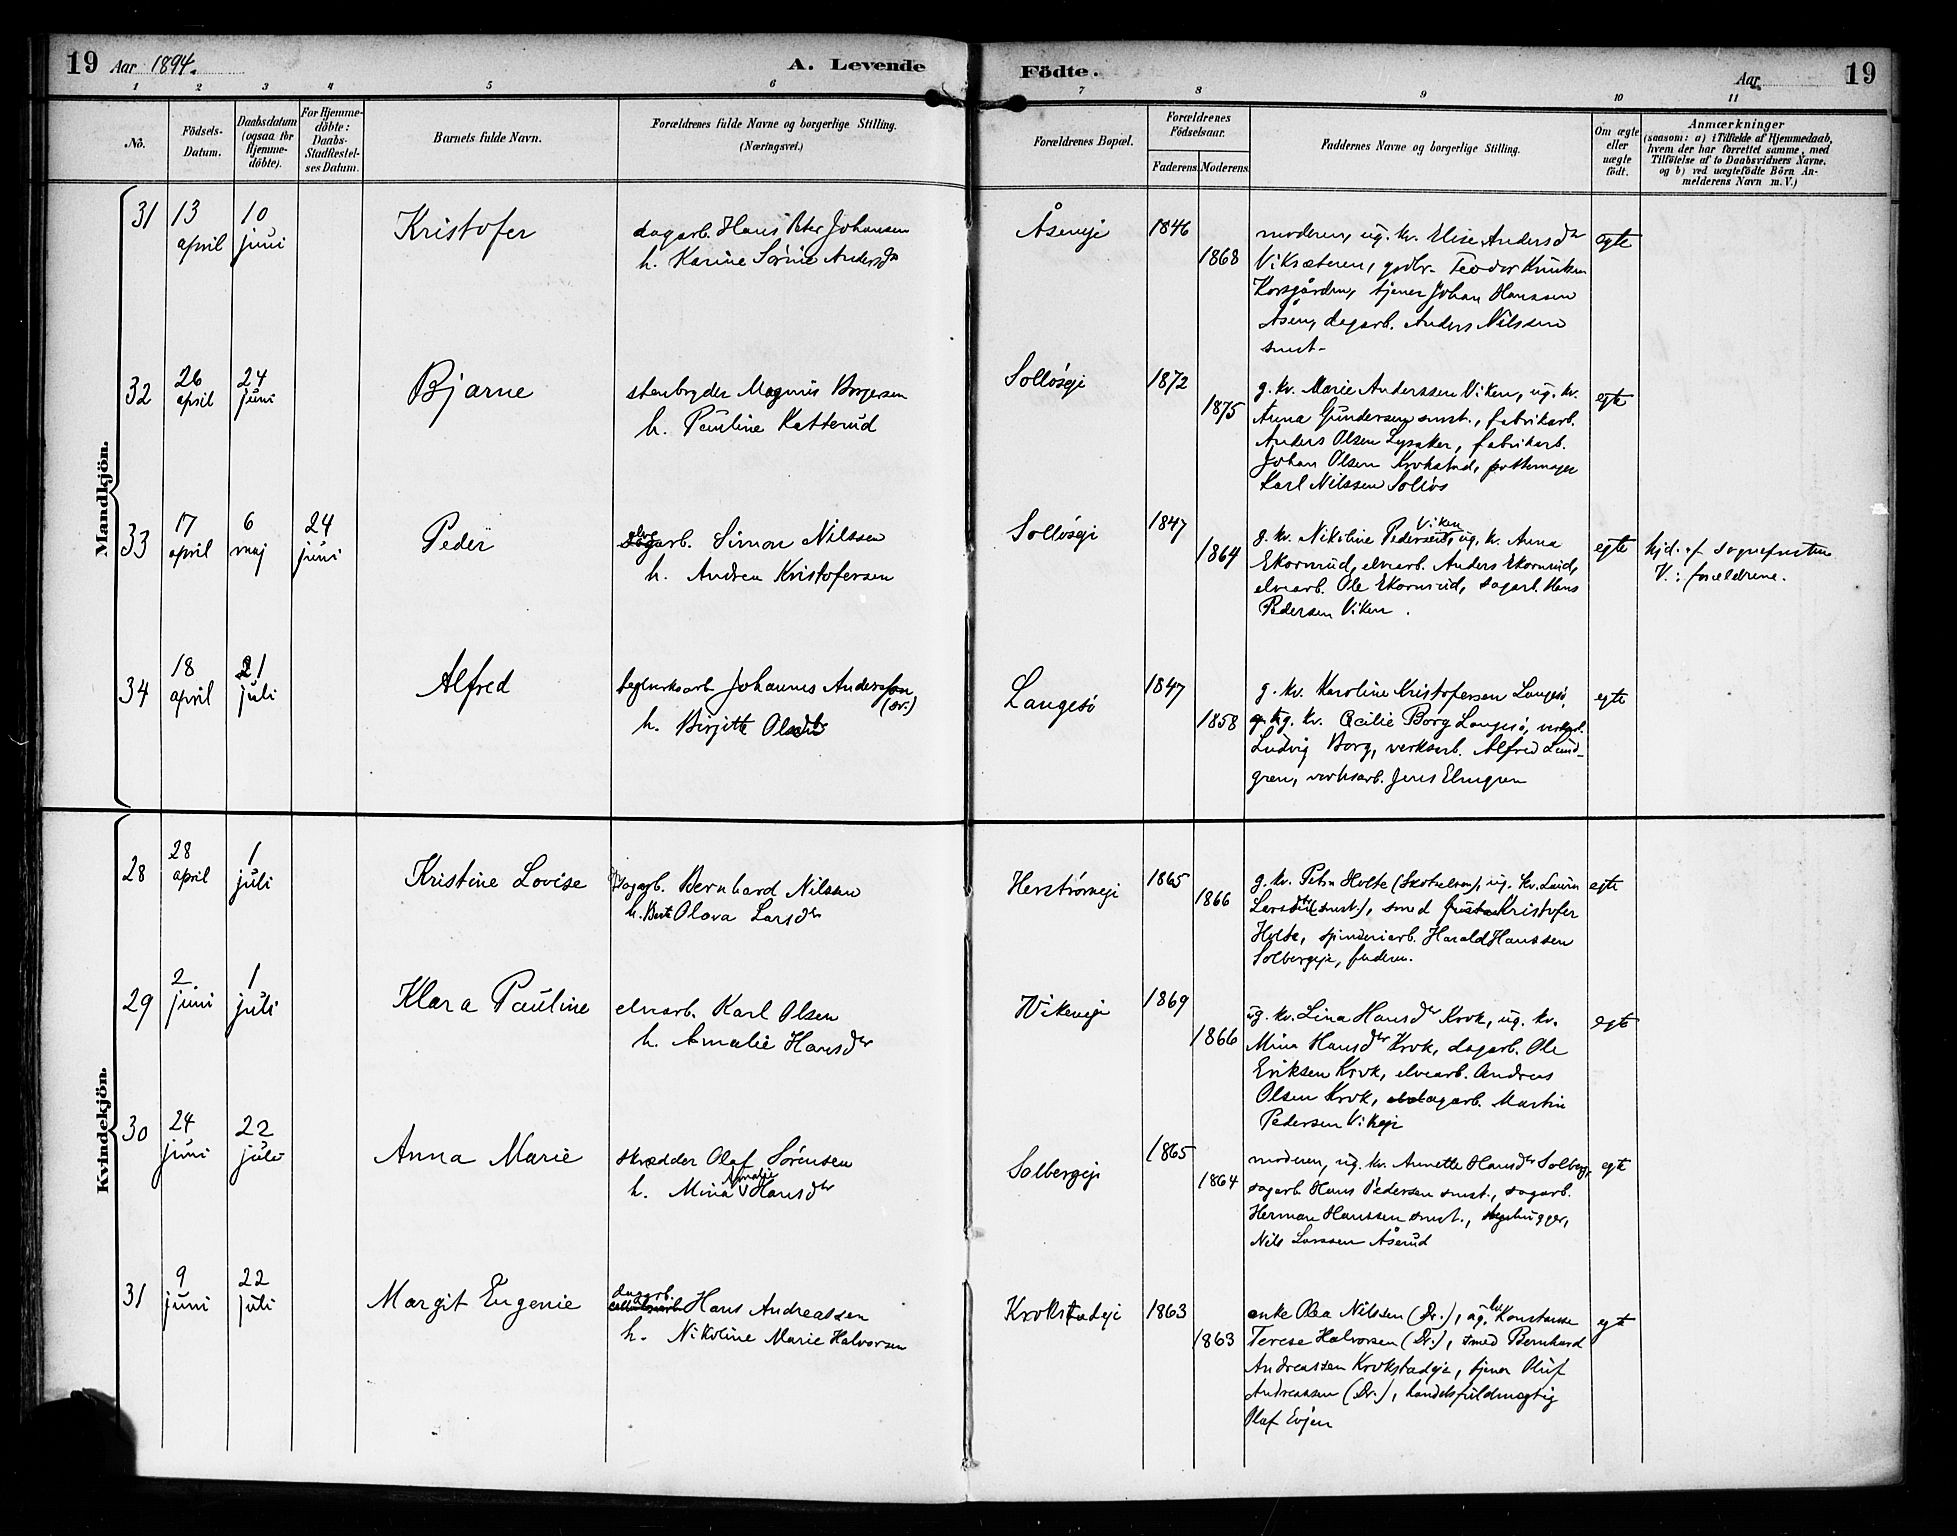 19 Aar 1894.
A. Levende Födte.
Aar 19
1 2 3 4 5 6 7 8 9 10 11
No.
Födsels-
Datum.
Daabsdatum
(ogsaa for
Hjemme-
döbte).
For Hjemme-
döbte:
Daabs-
Stadfæstel-
ses Datum.
Barnets fulde Navn.
Forældrenes fulde Navne og borgerlige Stilling.
(Næringsvei.)
Forældrenes Bopæl.
Forældrenes
Födselsaar.
Faderens. Moderens.
Faddernes Navne og borgerlige Stilling.
Om ægte
eller
uægte
födt.
Anmærkninger
(saasom: a) i Tilfælde af Hjemmedaab,
hvem der har forrettet samme, med
Tilföielse af to Daabsvidners Navne.
og b) ved uægtefödte Börn An-
melderens Navn m. V.)
Mandkjön.
31
13
april
10
juni
Kristofer
dagarb. Hans Peter Johansen
h. Karine Sørine Andersdr
Åseneje
1846
1868
moderen, ug. kv. Elise Andersdr
Viksæteren, gdbr. Teodor Knutsen
Korsgården, tjener Johan Hanssen
Åsen, dagarb. Anders Nilssen
smst.
egte
32
26
april
24
juni
Bjarne
stenbryder Magnus Borgersen
h. Pauline Katterud
Solløseje
1872
1875
g. kv. Marie Anderssen Viken, ug. kv.
Anna Gundersen smst., fabrikarb.
Anders Olsen Lysaker, fabrikarb.
Johan Olsen Krokstad, pottemager
Karl Nilssen Solløs
egte
33
17
april
6
maj
24
juni
Peder
elvearb. Simon Nilssen
h. Andrea Kristofersen
Solløseje
1847
1864
g. kv. Nikoline Pedersen Viken, ug. kv. Anna
Ekornrud, elvearb. Anders Ekornrud,
elvearb. Ole Ekornrud, sagarb. Hans
Pedersen Viken.
egte
hjd. af sognepresten
V.: forældrene.
34
18
april
21
juli
Alfred
teglverksarb. Johannes Andersson
(sv.)
h. Birjitte Olsdtr
Langesø
1847
1858
g. kv. Karoline Kristofersen Langesø,
g. kv. Cecilie Borg Langesø, verksarb.
Ludvig Borg, verksarb. Alfred Lund-
gren, verksarb. Jens Elmgren
egte
Kvindekjön.
28
28
april
1
juli
Kristine Lovise
sagarb. Bernhard Nilssen
h. Olava Larsdr
Herstrømeje
1865
1866
g. kv. Petra Holte (Skotselven), ug. kv. Laura
Larsdtr (smst.), smed Kristofer
Holte, spinneriarb. Harald Hanssen
Solbergeje, faderen.
egte
29
2
juni
1
juli
Klara Pauline
elvearb. Karl Olsen
h. Amalie Hansdr
Vikeneje
1869
1866
ug. kv. Lina Hansdr Krok, ug. kv.
Mina Hansdr Krok, dagarb. Ole
Eriksen Krok, elvearb. Andreas
Olsen Krok, dagarb. Martin
Pedersen Vikeje
egte
30
24
juni
22
juli
Anna Marie
skrædder Olaf Sørensen
h. Mina Amalie Hansdr
Solbergeje
1865
1864
moderen, ug. kv. Annette Hansdr Solberg,
sagarb. Hans Pedersen smst., sagarb.
Herman Hanssen smst., stenhugger,
Nils Larssen Åserud
egte
31
9
juni
22
juli
Margit Eugenie
dagarb.
Hans Andreassen
h. Nikoline Marie Halvorsen
Krokstadeje
1863
1863
enke Olea Nilssen (Dr.), ug. kv. Konstanse
Terese Halvorsen (Dr.), smed Bernhard
Andreassen Krokstadeje, tjener Oluf
Andreassen (Dr.), handelsfuldmægtig
Olaf Evjen
egte